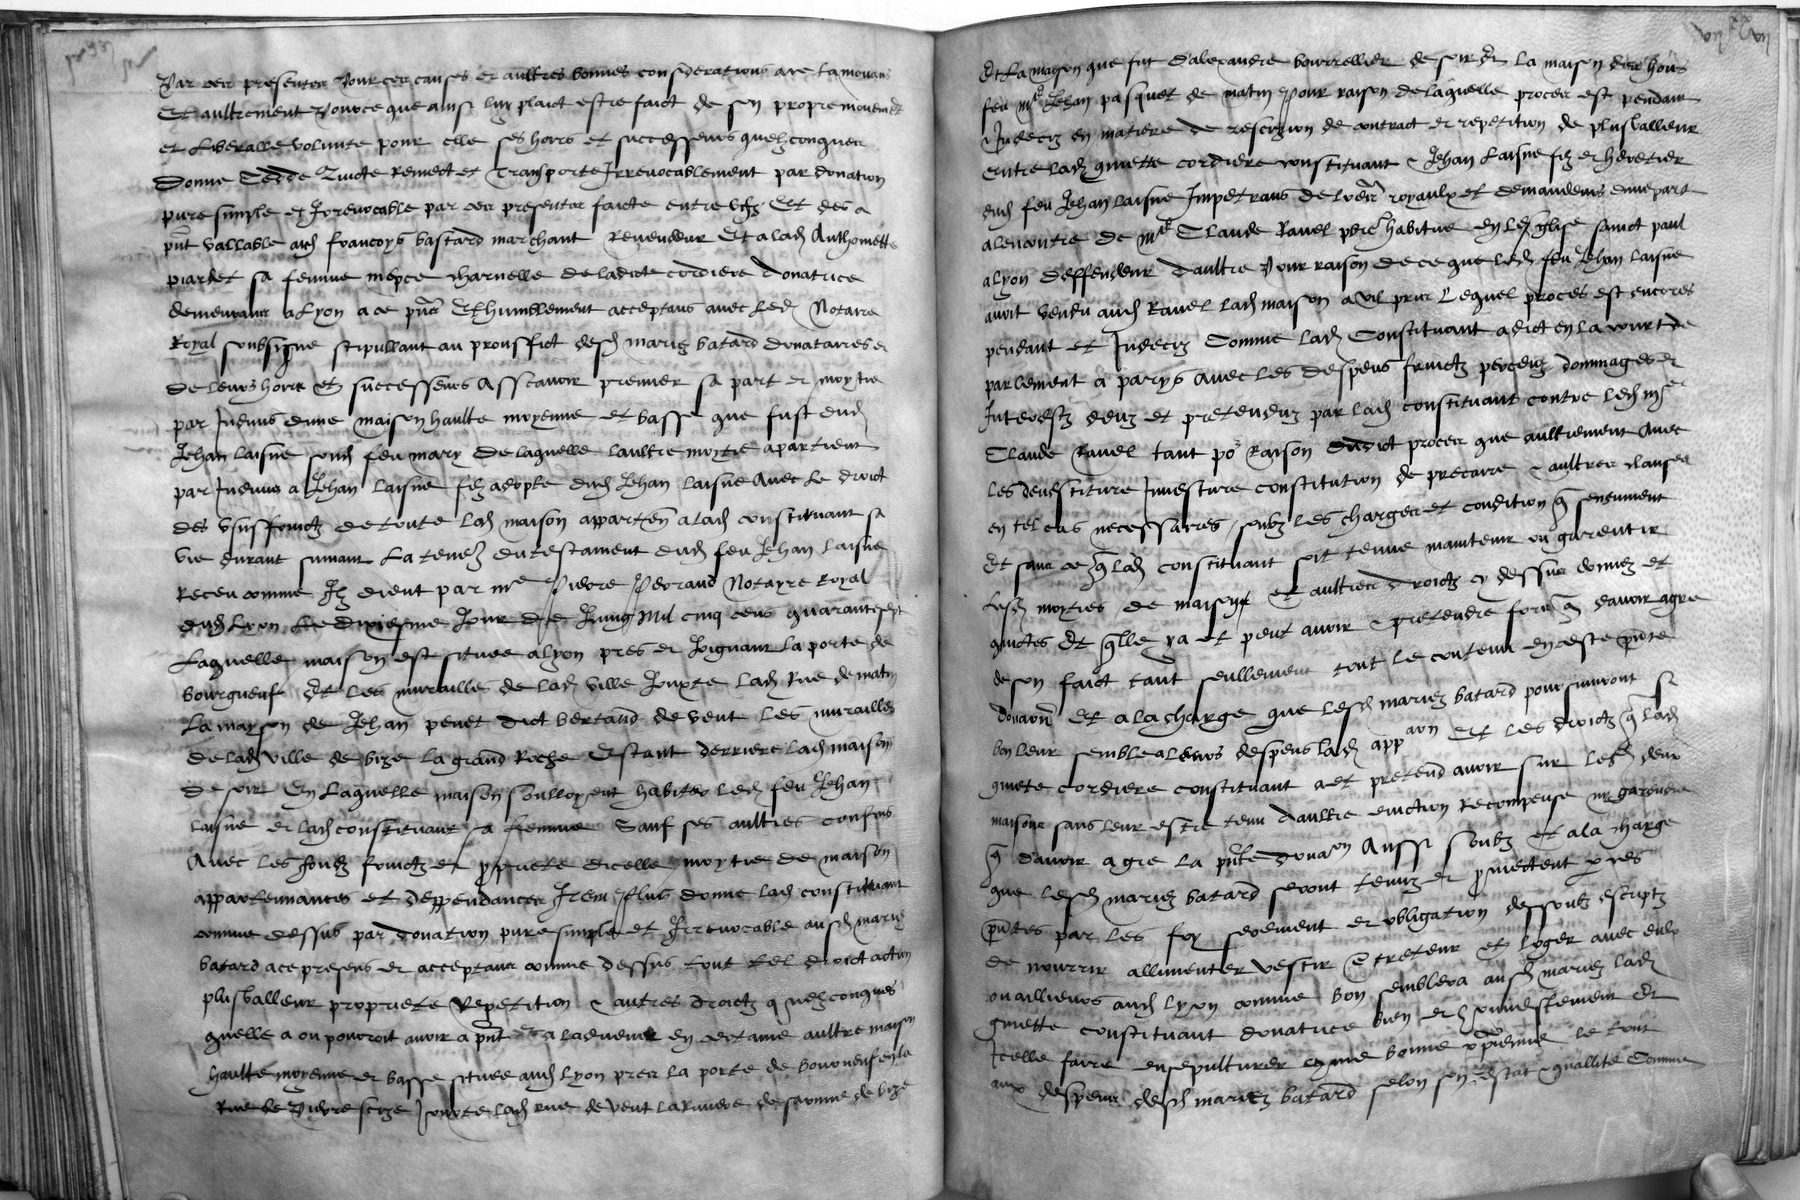 Par ces presentes Pour ces causes et aultres bonnes considerations a ce la mouvans
Et aultrement Pource que ainsi luy plaict estre faict de son propre mouvemt
et liberalle volunte pour elle ses hoirs et successeurs quelzconques
donne cedde quicte remect et transporte Irrevocablement par donation
pure simple et Irrevocable par ces presentes faicte entre vifz Et des a
pnt vallable aud francoys bastard marchant Revendeur Et a lad Anthoinette
piardet sa femme niepce charnelle de ladicte cordiere donatrice
demeurans a Lyon a ce pns Et humblement acceptans avec led Notaire
Royal soubsigne stipullant au prouffict desd mariez batard donataires et
de leurs hoirs et successeurs Asscavoir premier sa part et moytie
par Indivis dune maison haulte moyenne et basse que fust dud
Jehan laisne sond feu mary de laquelle laultre moytie apartient
par Indivis a Jehan laisne filz adopte dud Jehan laisne Avec le droict
des ususfruictz de toute lad maison apparten a lad constituant sa
vie durant suivant la teneur du testament dud feu Jehan laisne
Receu comme Ilz dient par me Pierre Notayre Royal
dud Lyon Le dixiesme Jour de Jung Mil cinq cens quarante sept
Laquelle maison est situee a Lyon pres et Joignant la porte de
bourgneuf Et les murailles de lad ville Jouxte lad Rue de matin
La mayson de Jehan penet dict bertaud de vent les murailles
de lad ville de bize la grand Roche Estant derriere lad maison
de soir En laquelle maison souloyent habiter led feu Jehan
laisne et lad constituant sa femme Sauf ses aultres confins
Avec les fondz fruictz et propriete dicelle moytie de maison
appartenances et deppendances Item Plus donne lad constituant
comme dessus par donation pure simple et Irrevocable ausd mariez
batard a ce presens et acceptans comme dessus tout tel droict action
plusvalleur propriete Repetition & autres droictz quelzconques
quelle a ou pouroit avoir a pnt et a ladvenir en certaine aultre maison
haulte moyenne et basse situee aud Lyon pres la porte de bourgneuf en la
Rue de Pierre scize Jouxte lad rue de vent la Riviere de saonne de bize
Et La maison que fut dalexandre bourrellier de soir Et la maison des hoirs
feu me Jehan pasquet de matin Pour raison de laquelle proces est pendant
& Indeciz en matiere de rescizion de contract et repetition de plusvalleur
entre lad guiette cordiere constituant & Jehan laisne filz et heretier
dud feu Jehan laisne Impetrans de lettres royaulx et demandeurs dune part
alencontre de me Claude Ravel pbre habitue en leglise sainct paul
a Lyon deffendeur daultre Pour raison de ce que led feu Jehan laisne
avoit vendu aud Ravel lad maison a vil pris Lequel proces est encores
pendant et Indeciz Comme lad Constituant a dict en la court de
parlement a parys avec les despens fruictz perceuz dommages et
Interestz deuz et pretenduz par lad constituant contre led me
Claude Ravel tant po raison dudict proces que aultrement Avec
les devestiture Investiture constitution de precaire & aultres clauses
en tel cas necessaires soubz les charges et condition q senenuivent
Et sans ce q lad constituant soit tenue maintenir ou garentir
lesd moyties de maison Et aultres droictz cy dessus donnez et
quictes Et qlle y a et peut avoir & pretendre fors q davoir agre
de son faict tant seullement tout le contenu en ceste pnte
donaon Et a la charge que lesd mariez batard poursuivront si
bon leur semble a leurs despens lad appaon Et les droictz q lad
guiete cordiere constituant a et pretend avoir sur lesd deux
maisons sans leur estre tenu daultre eviction recompense ny garendie
q davoir agre la pnte donaon Aussi soubz et a la charge
que lesd mariez batard seront tenuz et promectent par ces
pntes par les foy serement et obligation dessoubz escriptz
de nourrir allimenter vestir entretenir et loger avec eulx
ou ailleurs aud Lyon comme bon semblera ausd mariez lad
guiette constituant donatrice bien et honnestement Et
Icelle faire ensepulturer come bonne xpienne le tout
aux despens desd mariez batard selon son estat & quallite Comme